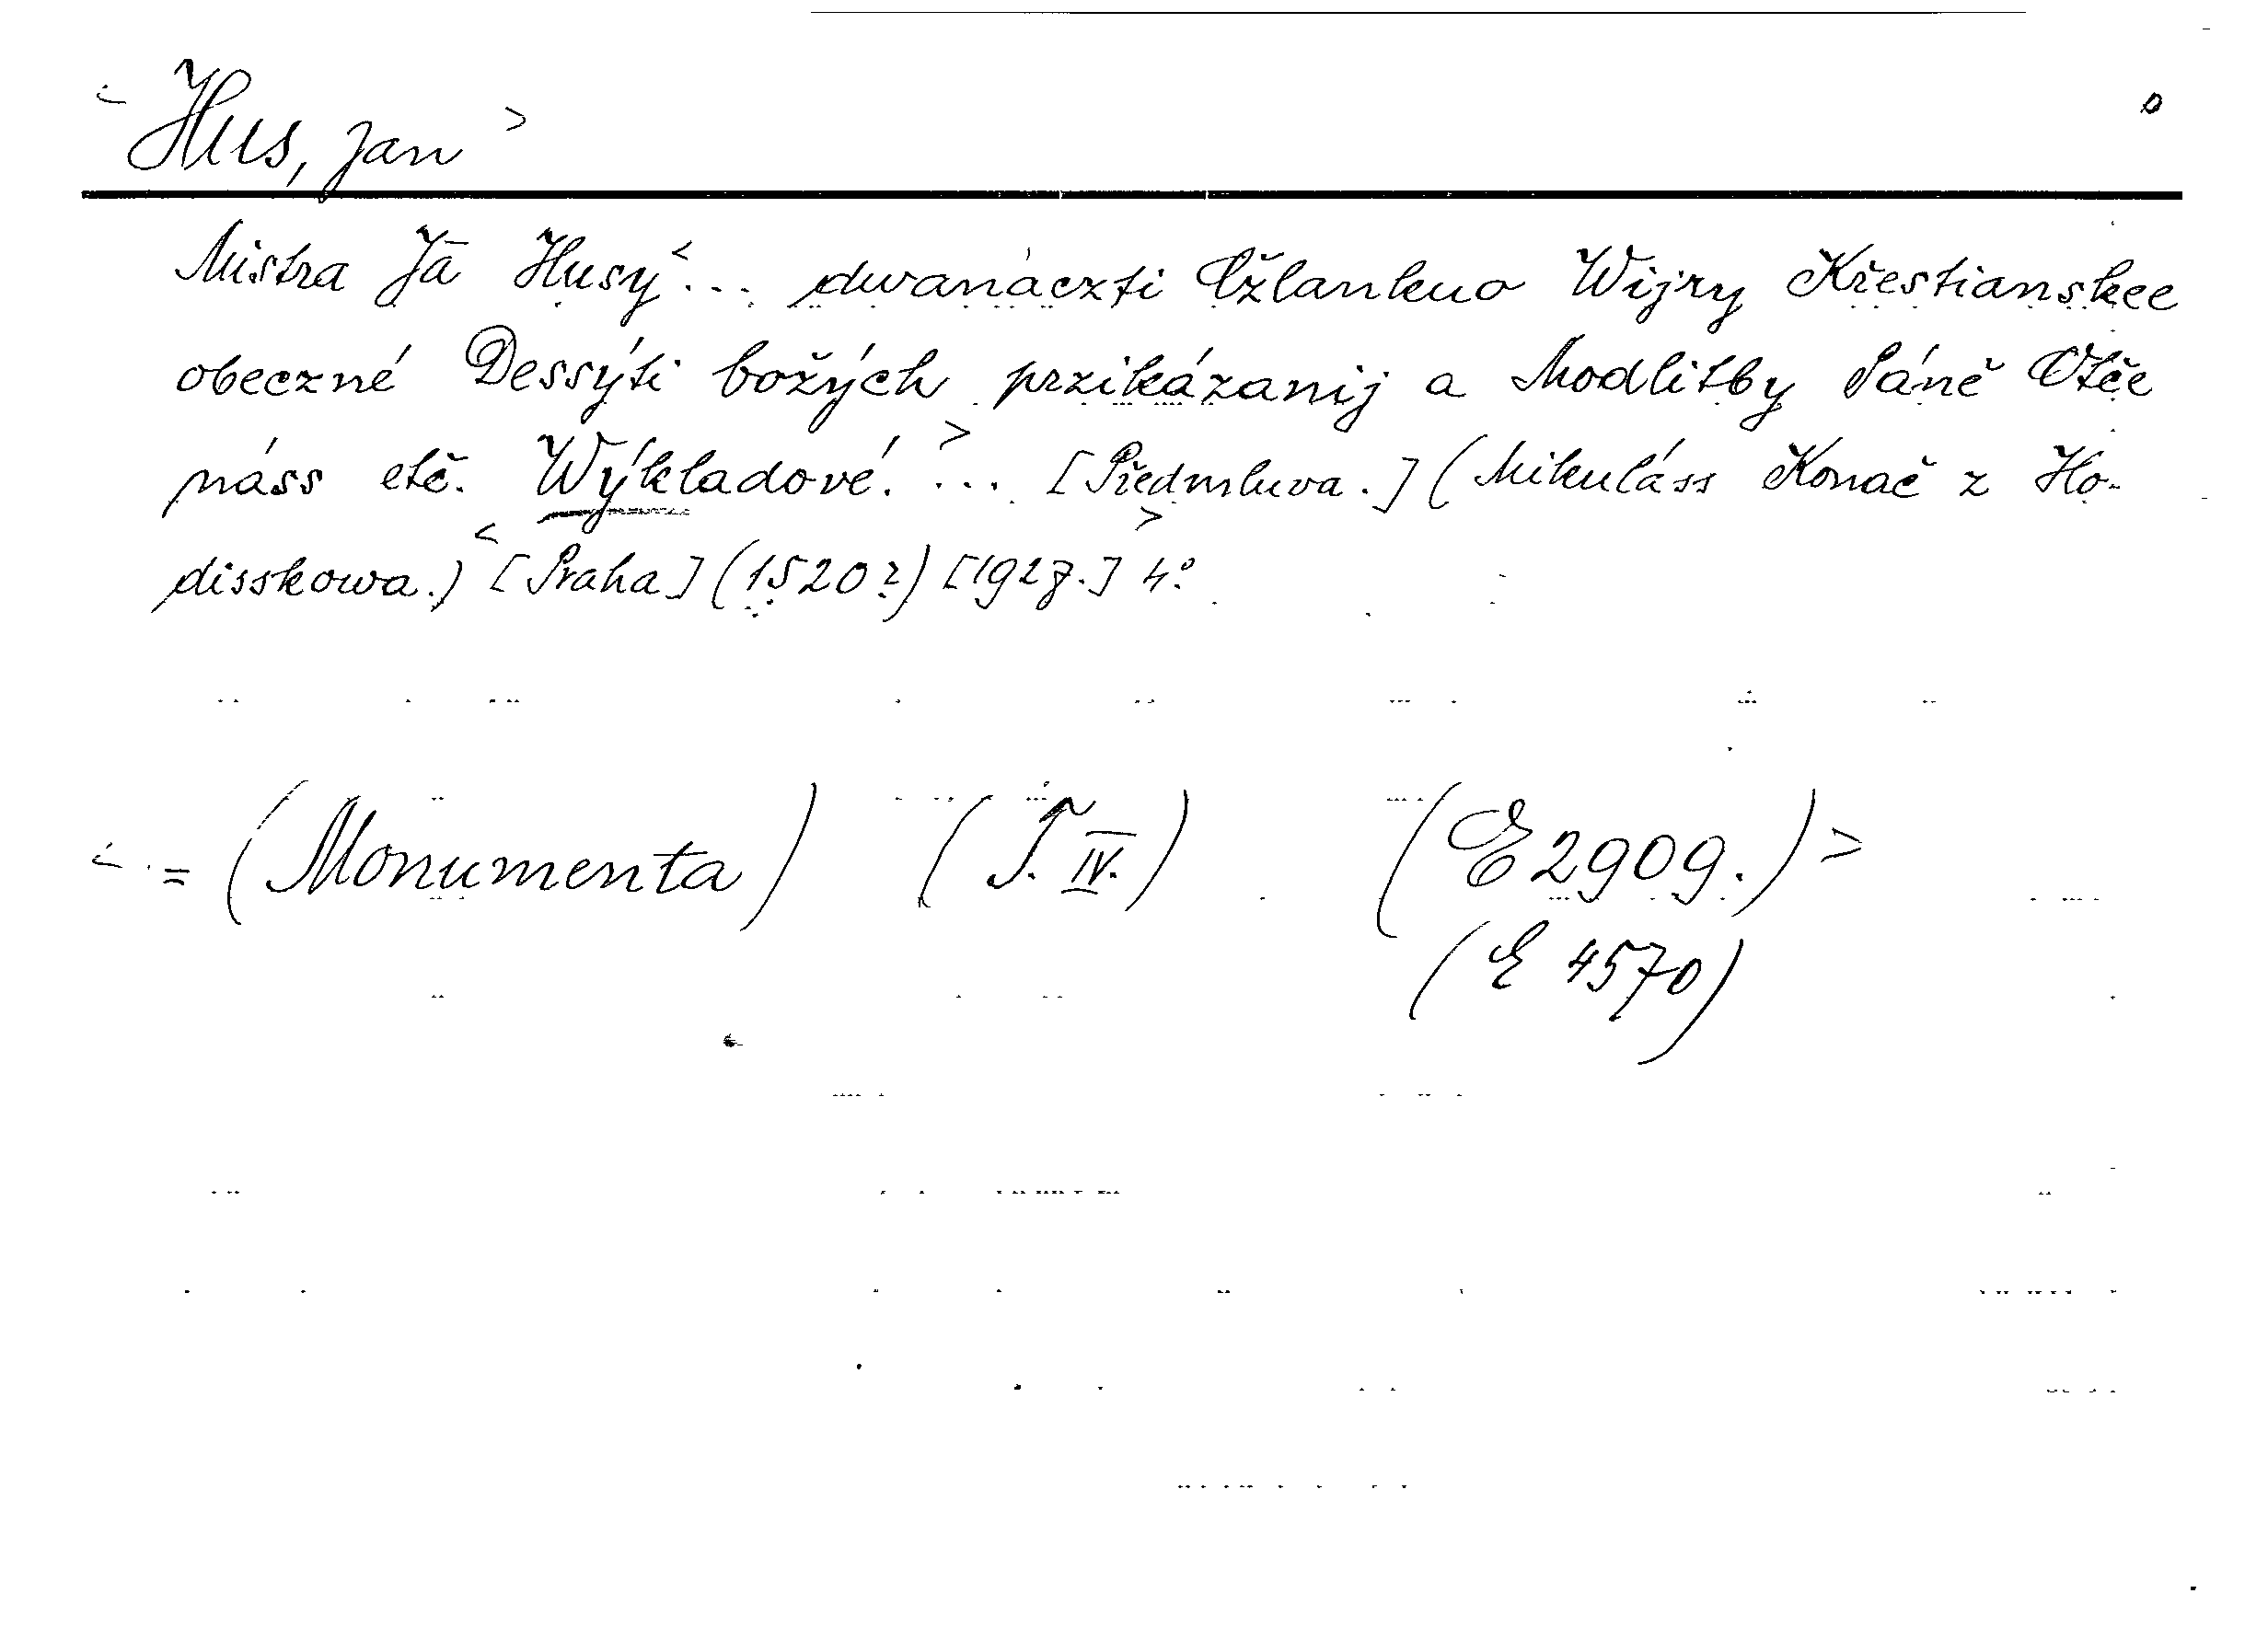 <Hus, Jan> o
Mistra Jā Husy<... dwanáczti Cžlankuo Wijry Křestianskee
obeczné Dessýti božých przikázanij a Modlitby Páně Otče
náss etč. Wýkladové.>... [Předmluva.] (Mikuláss Konač z Ho-
disskowa.) <[Praha] (1520?) [1927.]> 4°.
<= (Monumenta) (T. IV.) (E 2909.)>
(E 4570)